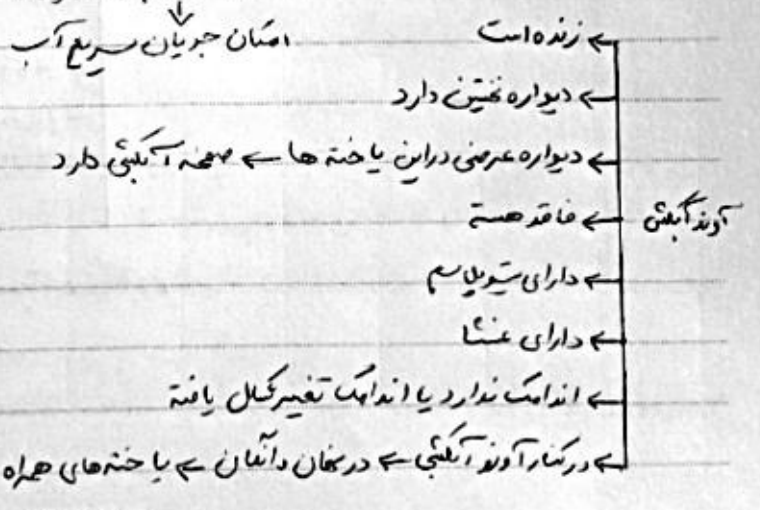 امکان جریان سریع آب
← زنده است
← دیواره نخستین دارد
← دیواره عرضی در این یاخته ها ← صفحه آبکشی دارد
آوند آبکش ← فاقد هسته
← دارای سیتوپلاسم
← دارای غشا
← اندامک ندارد یا اندامک تغییر شکل یافته
← در کنار آوند آبکشی ← در نهان دانگان ← یاخته های همراه